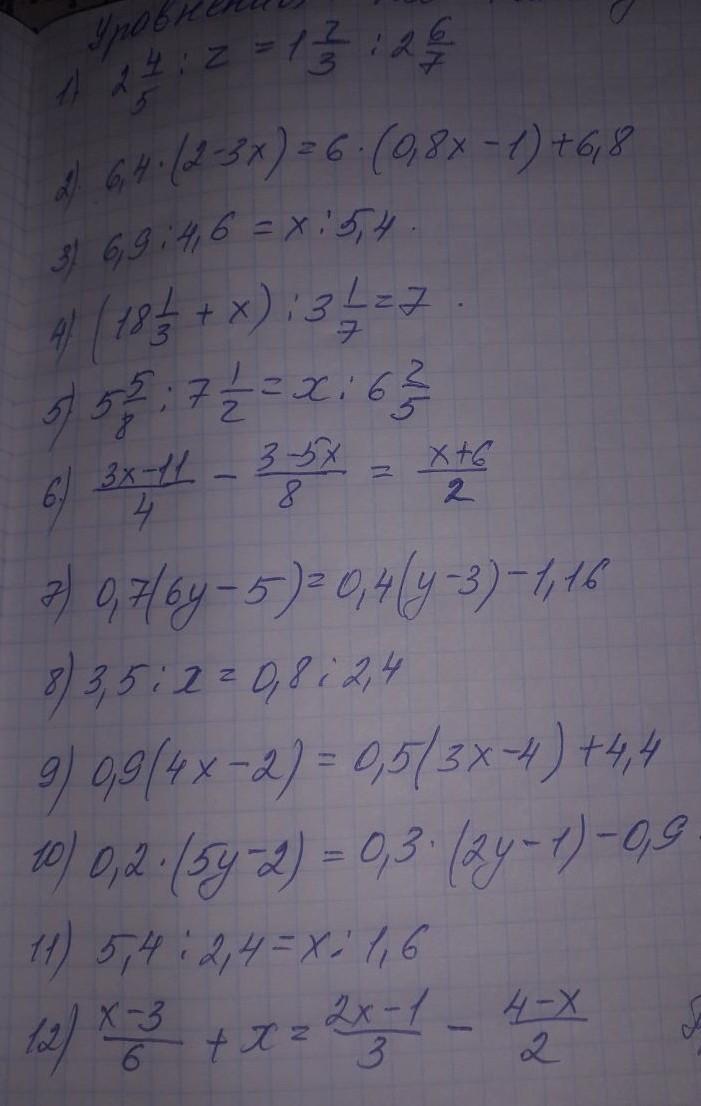 Уравнения
1) 2 4/5 : z = 1 2/3 : 2 6/7
2) 6,4·(2-3x)=6·(0,8x-1)+6,8
3) 6,9:4,6=x:5,4.
4) (18 1/3 + x) : 3 1/7 = 7.
5) 5 5/8 : 7 1/2 = x : 6 2/5
6) (3x-11)/4 - (3-5x)/8 = (x+6)/2
7) 0,7(6y-5)=0,4(y-3)-1,16
8) 3,5:x=0,8:2,4
9) 0,9(4x-2)=0,5(3x-4)+4,4
10) 0,2·(5y-2)=0,3·(2y-1)-0,9
11) 5,4:2,4=x:1,6
12) (x-3)/6 + x = (2x-1)/3 - (4-x)/2